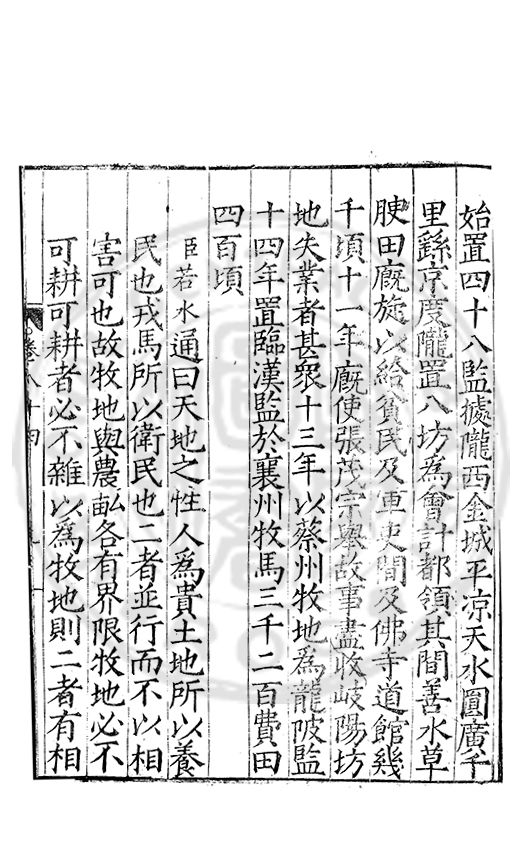 始置四十八監據隴西金城平凉天水圓廣千
里繇京度隴置八坊為會計都領其間善水草
腴田廐旋以給貧民及軍吏間及佛寺道館幾
千頃十一年廐使張茂宗舉故事盡收岐陽坊
地失業者甚衆十三年以蔡州牧地為龍陂監
十四年置臨漢監於襄州牧馬三千二百費田
四百頃
臣若水通曰天地之性人爲貴土地所以養
民也戎馬所以衛民也二者並行而不以相
害可也故牧地與農畝各有界限牧地必不
可耕可耕者必不雜以爲牧地則二者有相
卷八十四